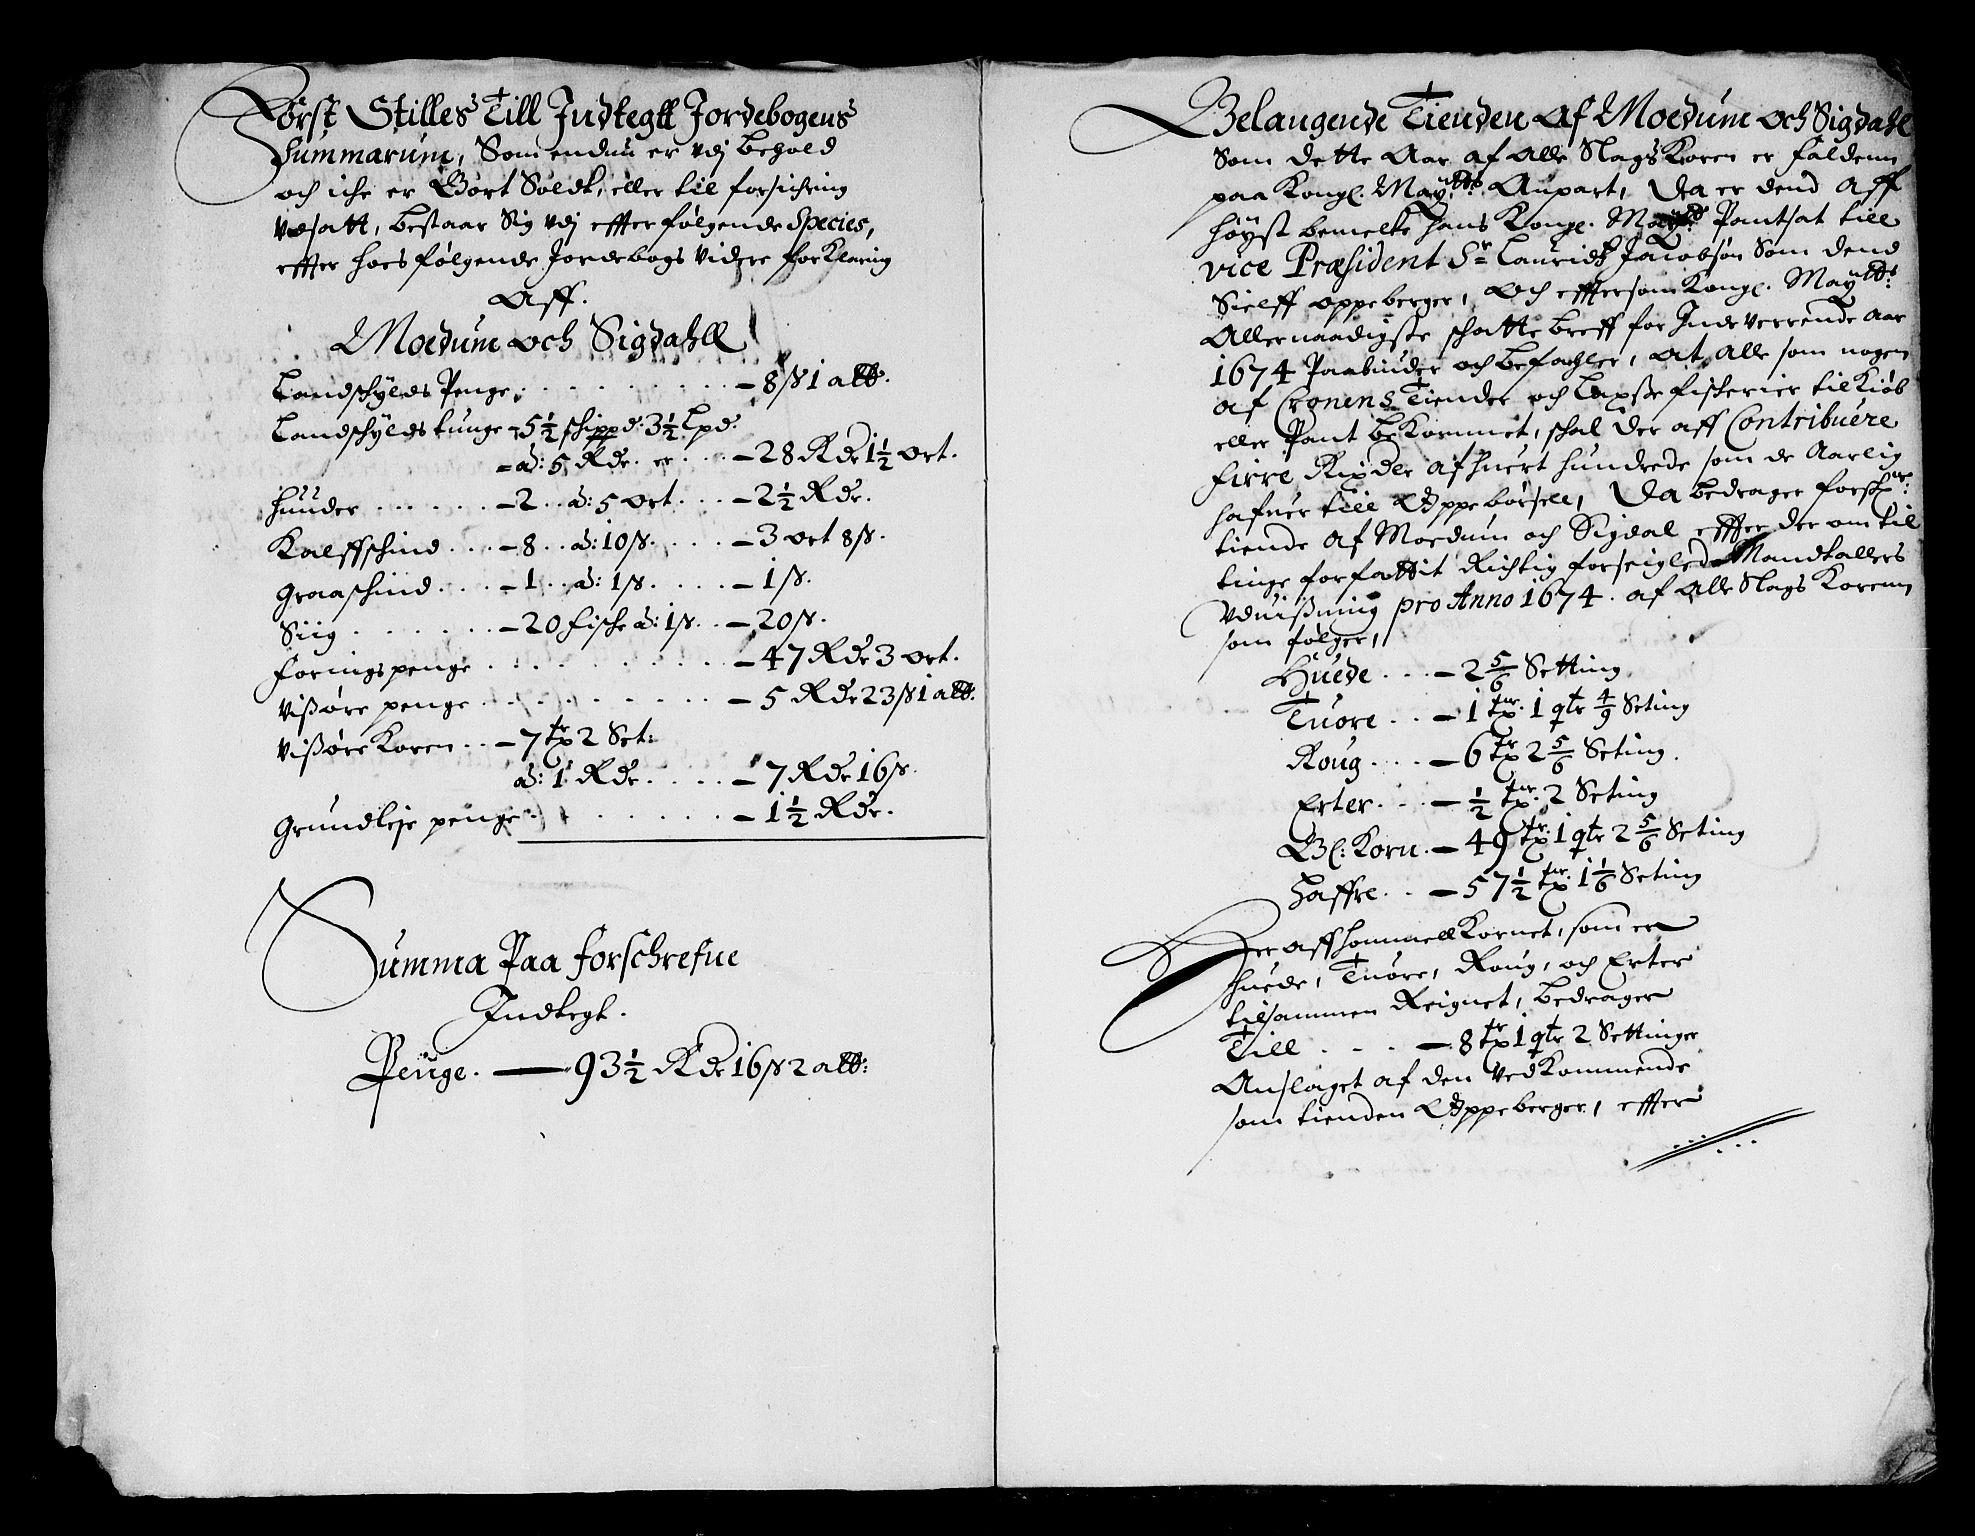 Først Stilles Till Indtegtt Jordebogens
Summarum, Som endnu er vdj behold
och iche er Bort Soldt, eller til forsichring
vdsatt, bestaar Sig vdj effter følgende Species,
effter hoes følgende Jordebogs videre forKlaring
Aff.
Modum och Sigdahll
Landschylds Penge . . . . . . . . . – 8 ß 1 alb.
Landschylds tunge – 5½ schippd: 3½ Lpd:
– a: 5 Rdr. er . . . – 28 Rdr 1½ ort.
Huuder . . . . . . – 2 . . a: 5 ort . . . – 2½ Rdr.
Kalffschind . . . – 8 . . a: 10 ß . . . . – 3 ort 8 ß.
Graaschind . . . . – 1 . . a: 1 ß . . . . – 1 ß.
Siig . . . . . . . – 20 fische a: 1 ß . . – 20 ß.
Forings penge . . . . . . . . . – 47 Rdr 3 ort.
Vißøre penge . . . . . . . . . – 5 Rdr 23 ß 1 alb.
Vißøre Koren . . – 7 tr 2 Set:
a: 1 Rdr . . . . . – 7 Rdr 16 ß.
Grundleje penge . . . . . . . . – 1½ Rdr.
Summa Paa forschrefne
Indtegt.
Penge. — 93½ Rdr 16 ß 2 alb:
Belangende Tienden af Moedum och Sigdahl
Som dette Aar af alle Slags Koren er falden
paa Kongl. Maytts. Anpart, Da er dend Aff
høyst bemelte hans Kongl. Maytt. Pantsat till
vice Præsident Sr Lauridtz Jacobsøn Som dend
Sielff oppeberger, och efftersom Kongl. Maytts:
Allernaadigste schatte breff for Indeverrende Aar
1674 Paabinder och befaghler, at alle som nogen
af Cronens Tiender och Laxse fischerier til Kiøb
eller Pant bekommet, schal der aff Contribuere
firre Rixdlr af huert hundrede som de Aarlig
hafuer till Oppebørsell, Da bedrager forschr:
tiende af Moedum och Sigdal effter der om til
tinge forfattit Richtig forseiglede Mandtallers
Vduißning pro Anno 1674. af alle Slags Korenn
som følger,
Huede . . . – 2 5/6 Setting
Tuøre . . – 1 tr. 1 qtr 4/9 Seting
Roug . . . – 6 tr 2 5/6 Seting.
Erter . . . – ½ tr. 2 Seting
Bl: Korn . – 49 tr. 1 qtr 2 5/6 Seting
Haffre . . – 57½ tr. 1 1/6 Seting
Der aff hommell Kornet, som er
huede, Tuøre, Roug, och Erter
tilsammen Reignet, bedrager
Till . . . . – 8 tr 1 qtr 2 Settinger
Anslaget af den Vedkommende
som tienden Oppeberger, effter